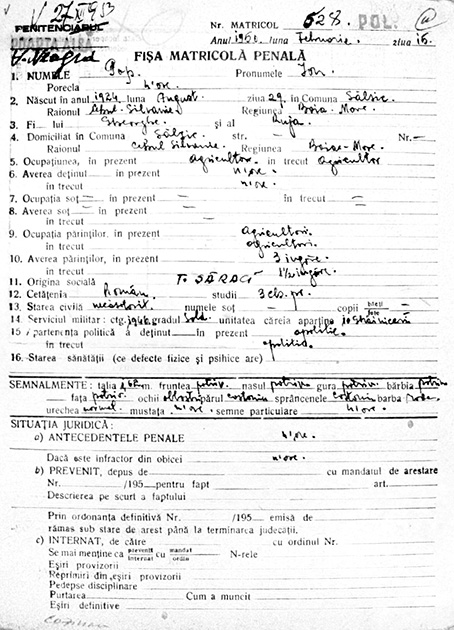 27 XII 953
PENITENCIARUL
POARTA ALBĂ
V. Neagră
Nr. MATRICOL 528. POL.
Anul 195 luna Februarie ziua 15.
FIȘA MATRICOLĂ PENALĂ
1. NUMELE Pop. Pronumele Ion.
Porecla n'are.
2. Născut în anul 1924 luna August. ziua 29. în Comuna Sălsig.
Raionul Cehul Silvaniei Regiunea Baia-Mare.
3. Fi lui Gheorghe și al
4. Domiciliat în Comuna Sălsig str. — Nr. —
Raionul Cehul Silvaniei Regiunea Baia-Mare.
5. Ocupațiunea, în prezent agricultor. în trecut agricultor
6. Averea deținut în prezent n'are.
în trecut n'are.
7. Ocupația soț = în prezent = în trecut =
8. Averea soț în prezent
în trecut
9. Ocupația părinților, în prezent Agricultori.
în trecut agricultori.
10. Averea părinților, în prezent 3 iugăre.
în trecut 1½ iugăre.
11. Origina socială T. SĂRACI
12. Cetățenia Română. studii 3 cls. pr.
13. Starea civilă necăsătorit. numele soț — copii băeți fete =
14. Serviciul militar: ctg. 1946 gradul Sold. unitatea căreia aparține
15. Apartenența politică a deținut în prezent apolitic.
în trecut apolitic.
16. Starea sănătății (ce defecte fizice și psihice are)
SEMNALMENTE: talia 1,62 m. fruntea potriv. nasul potriv. gura potriv. bărbia potriv.
fața potriv. ochii albaștri părul castaniu sprâncenele castanii barba rade.
urechea normal. mustața n'are. semne particulare n'are.
SITUAȚIA JURIDICĂ:
a) ANTECEDENTELE PENALE n'are.
Dacă este infractor din obicei n'are.
b) PREVENIT, depus de cu mandatul de arestare
Nr. /195 pentru fapt art.
Descrierea pe scurt a faptului
Prin ordonanța definitivă Nr. /195 emisă de
rămas sub stare de arest până la terminarea judecății.
c) INTERNAT, de către cu ordinul Nr.
Se mai menține ca prevenit internat cu mandat ordin N-rele
Eșiri provizorii
Reprimiri din eșiri provizorii
Pedepse disciplinare
Purtarea Cum a muncit
Eșiri definitive